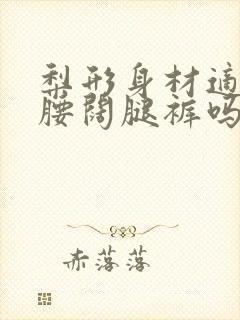 梨形身材适
腰阔腿裤吗
赤落落